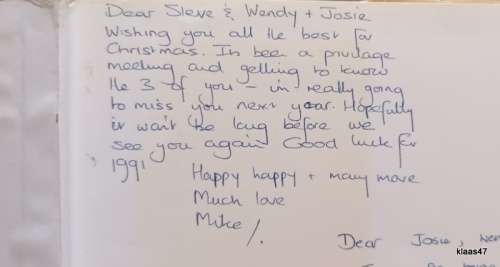 Dear Steve & Wendy + Josie
Wishing you all the best for
Christmas. Its been a privilage
meeting and getting to know
the 3 of you - im really going
to miss you next year. Hopefully
it wont be long before we
see you again Good luck for
1991
Happy happy + many more
Much love
Mike /.
Dear Josie, Wen
klaas47